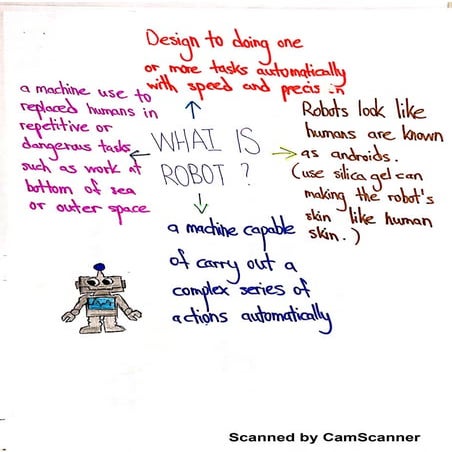 Design to doing one
or more tasks automatically
with speed and precis n
a machine use to
replaced humans in
repetitive or
dangerous tasks
such as work at
bottom of sea
or outer space
WHAT IS
ROBOT ?
Robots look like
humans are known
as androids.
(use silica gel can
making the robot's
skin like human
skin.)
a machine capable
of carry out a
complex series of
actions automatically
Scanned by CamScanner